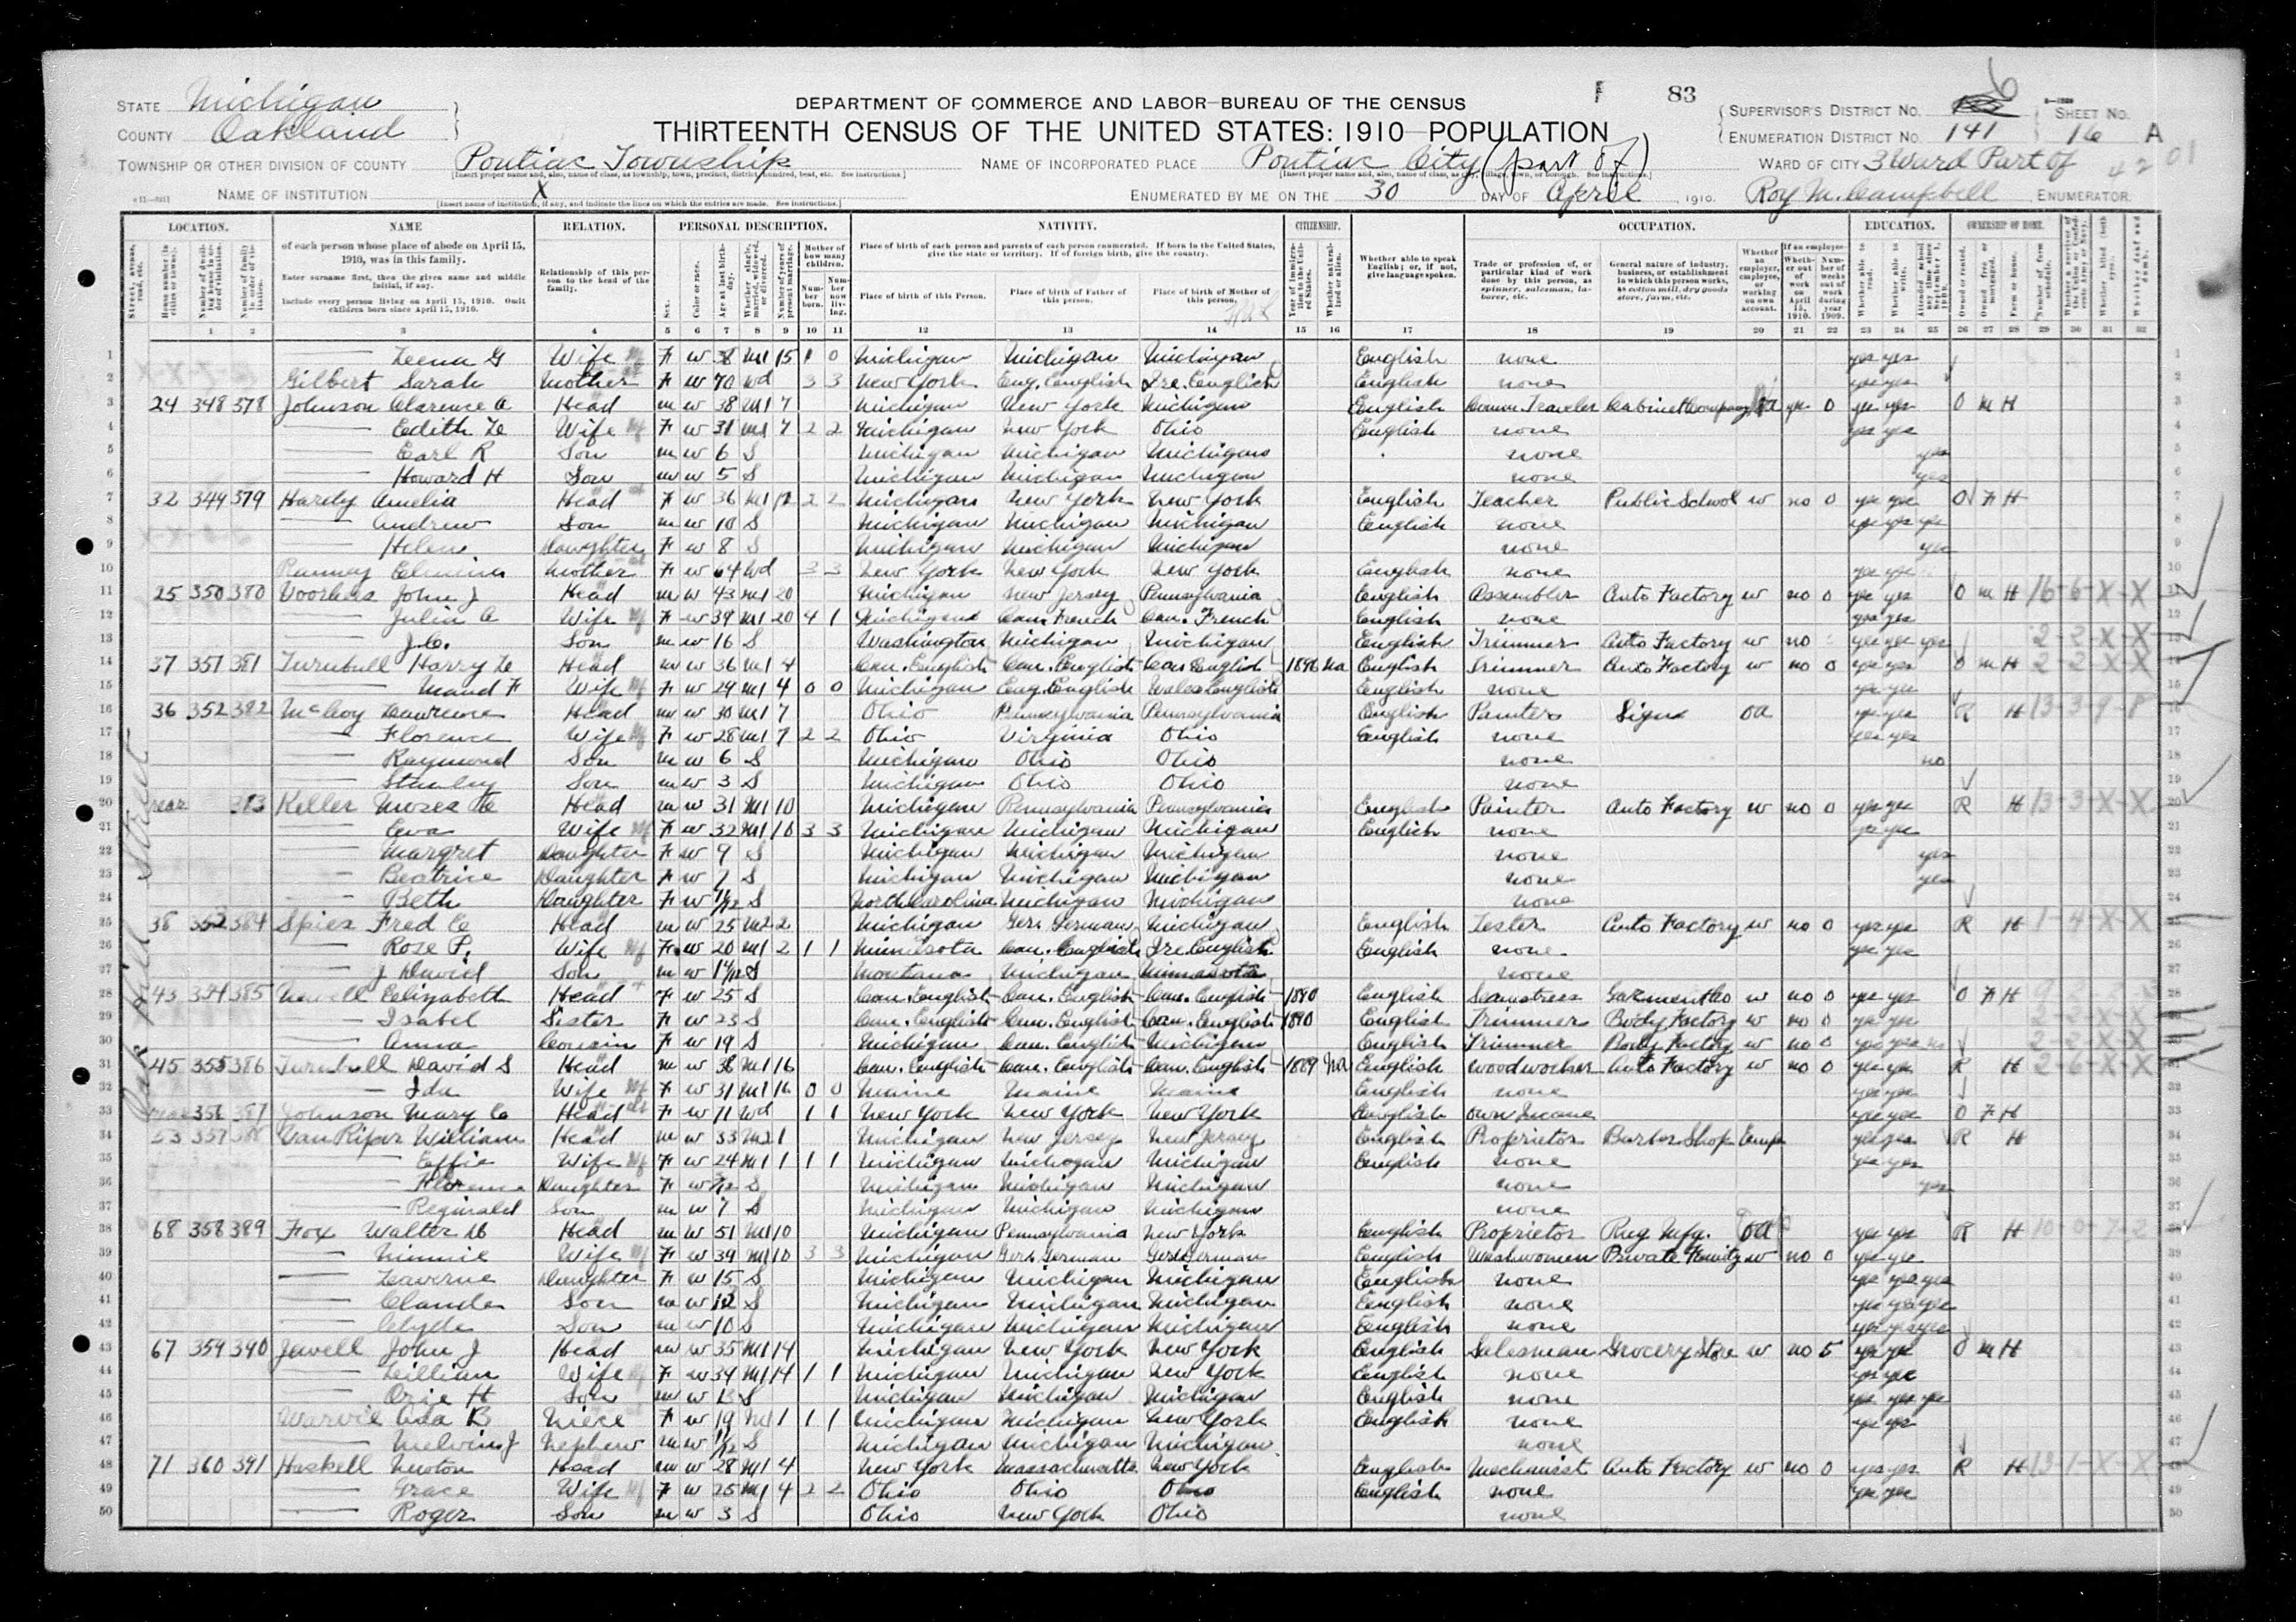 83
STATE Michigan
COUNTY Oakland
DEPARTMENT OF COMMERCE AND LABOR—BUREAU OF THE CENSUS
THIRTEENTH CENSUS OF THE UNITED STATES: 1910—POPULATION
SUPERVISOR'S DISTRICT NO. 6
ENUMERATION DISTRICT NO. 141
SHEET NO. 16 A
4201
TOWNSHIP OR OTHER DIVISION OF COUNTY Pontiac Township
NAME OF INCORPORATED PLACE Pontiac City (part of)
WARD OF CITY 3 Ward Part of
NAME OF INSTITUTION X
ENUMERATED BY ME ON THE 30 DAY OF April, 1910. Roy M. Campbell, ENUMERATOR
LOCATION. NAME RELATION. PERSONAL DESCRIPTION. NATIVITY. CITIZENSHIP. OCCUPATION. EDUCATION. OWNERSHIP OF HOME.
of each person whose place of abode on April 15, 1910, was in this family.
Enter surname first, then the given name and middle initial, if any.
Include every person living on April 15, 1910. Omit children born since April 15, 1910.
Relationship of this person to the head of the family.
Place of birth of each person and parents of each person enumerated. If born in the United States, give the state or territory. If of foreign birth, give the country.
Place of birth of this Person. Place of birth of Father of this person. Place of birth of Mother of this person.
Whether able to speak English; or, if not, give language spoken.
1 2 3 4 5 6 7 8 9 10 11 12 13 14 15 16 17 18 19 20 21 22 23 24 25 26 27 28 29 30 31 32
Oak Hill Street
1 — Leena G Wife F W 38 M1 15 1 0 Michigan Michigan Michigan English none yes yes
2 Gilbert Sarah Mother F W 70 Wd 3 3 New York Eng. English Ire. English English none yes yes
3 24 348 378 Johnson Clarence A Head M W 38 M1 7 Michigan New York Michigan English Comm. Traveler Cabinet Company W yes 0 yes yes O M H
4 — Edith L Wife F W 31 M1 7 2 2 Michigan New York Ohio English none yes yes
5 — Earl R Son M W 6 S Michigan Michigan Michigan none yes
6 — Howard H Son M W 5 S Michigan Michigan Michigan none yes
7 32 349 379 Hardy Amelia Head F W 36 M1 12 2 2 Michigan New York New York English Teacher Public School W no 0 yes yes O F H
8 — Andrew Son M W 10 S Michigan Michigan Michigan English none yes yes yes
9 — Helen Daughter F W 8 S Michigan Michigan Michigan none yes
10 Mother F W 64 Wd 3 3 New York New York New York English none yes yes
11 25 350 380 Voorhees John J Head M W 43 M1 20 Michigan New Jersey Pennsylvania English Assembler Auto Factory W no 0 yes yes O M H 16-6-X-X
12 — Julia A Wife F W 39 M1 20 4 1 Michigan Can. French Can. French English none yes yes
13 — J.C. Son M W 16 S Washington Michigan Michigan English Trimmer Auto Factory W no yes yes yes 2-2-X-X
14 37 351 381 Turnbull Harry L Head M W 36 M1 4 Can. English Can. English Can. English 1896 Na English Trimmer Auto Factory W no 0 yes yes O M H 2-2-X-X
15 — Maud F Wife F W 29 M1 4 0 0 Michigan Eng. English Wales English English none yes yes
16 36 352 382 McCoy Lawrence Head M W 30 M1 7 Ohio Pennsylvania Pennsylvania English Painter Signs OA yes yes R H 13-3-9-8
17 — Florence Wife F W 28 M1 7 2 2 Ohio Virginia Ohio English none yes yes
18 — Raymond Son M W 6 S Michigan Ohio Ohio none no
19 — Stanley Son M W 3 S Michigan Ohio Ohio none
20 rear 383 Keller Moses Head M W 31 M1 10 Michigan Pennsylvania Pennsylvania English Painter Auto Factory W no 0 yes yes R H 13-3-X-X
21 — Eva Wife F W 32 M1 10 3 3 Michigan Michigan Michigan English none yes yes
22 — Margret Daughter F W 9 S Michigan Michigan Michigan none yes
23 — Beatrice Daughter F W 7 S Michigan Michigan Michigan none yes
24 — Beth Daughter F W S North Carolina Michigan Michigan none
25 38 353 384 Spies Fred C Head M W 25 M2 2 Michigan Ger. German Michigan English Tester Auto Factory W no 0 yes yes R H 1-4-X-X
26 — Rose P. Wife F W 20 M1 2 1 1 Minnisota Can. English Ire. English English none yes yes
27 — J David Son M W S Montana Michigan Minnesota none
28 43 354 385 Newell Elizabeth Head F W 25 S Can. English Can. English Can. English 1890 English Seamstress Garment Co W no 0 yes yes O F H
29 — Isabel Sister F W 23 S Can. English Can. English Can. English 1890 English Trimmer Body Factory W no 0 yes yes
30 — Anna Cousin F W 19 S Michigan Can. English Michigan English Trimmer Body Factory W no 0 yes yes no
31 45 355 386 Turnbull David S Head M W 38 M1 16 Can. English Can. English Can. English 1889 Na English Woodworker Auto Factory W no 0 yes yes R H 2-6-X-X
32 — Ida Wife F W 31 M1 16 0 0 Maine Maine Maine English none yes yes
33 rear 356 387 Johnson Mary C Head F W 71 Wd 1 1 New York New York New York English Own Income yes yes O F H
34 53 357 388 Van Riper William Head M W 33 M2 1 Michigan New Jersey New Jersey English Proprietor Barber Shop Emp yes yes R H
35 — Effie Wife F W 24 M1 1 1 1 Michigan Michogan Michigan English none yes yes
36 — Florence Daughter F W S Michigan Michigan Michigan none yes
37 — Reginald Son M W 7 S Michigan Michigan Michigan none
38 68 358 389 Fox Walter Head M W 51 M1 10 Michigan Pennsylvania New York English Proprietor Rug Mfg. OA yes yes R H
39 — Minnie Wife F W 39 M1 10 3 3 Michigan Ger. German Ger. German English Washwomen Private Family W no 0 yes yes
40 — Laverne Daughter F W 15 S Michigan Michigan Michigan English none yes yes yes
41 — Claude Son M W 12 S Michigan Michigan Michigan English none yes yes yes
42 — Clyde Son M W 10 S Michigan Michigan Michigan English none yes yes yes
43 67 359 390 Jewell John J Head M W 35 M1 14 Michigan New York New York English Salesman Grocery Store W no 5 yes yes O M H
44 — Lillian Wife F W 34 M1 14 1 1 Michigan Michigan New York English none yes yes
45 — Orie H Son M W 13 S Michigan Michigan Michigan English none yes yes yes
46 Warvil Ada B Niece F W 19 M1 1 1 1 Michigan Michigan New York English none yes yes
47 — Melvin J Nephew M W S Michigan Michigan Michigan none
48 71 360 391 Haskell Newton Head M W 28 M1 4 New York Massachusetts New York English Mechanist Auto Factory W no 0 yes yes R H 13-1-X-X
49 — Grace Wife F W 25 M1 4 2 2 Ohio Ohio Ohio English none yes yes
50 — Roger Son M W 3 S Ohio New York Ohio none